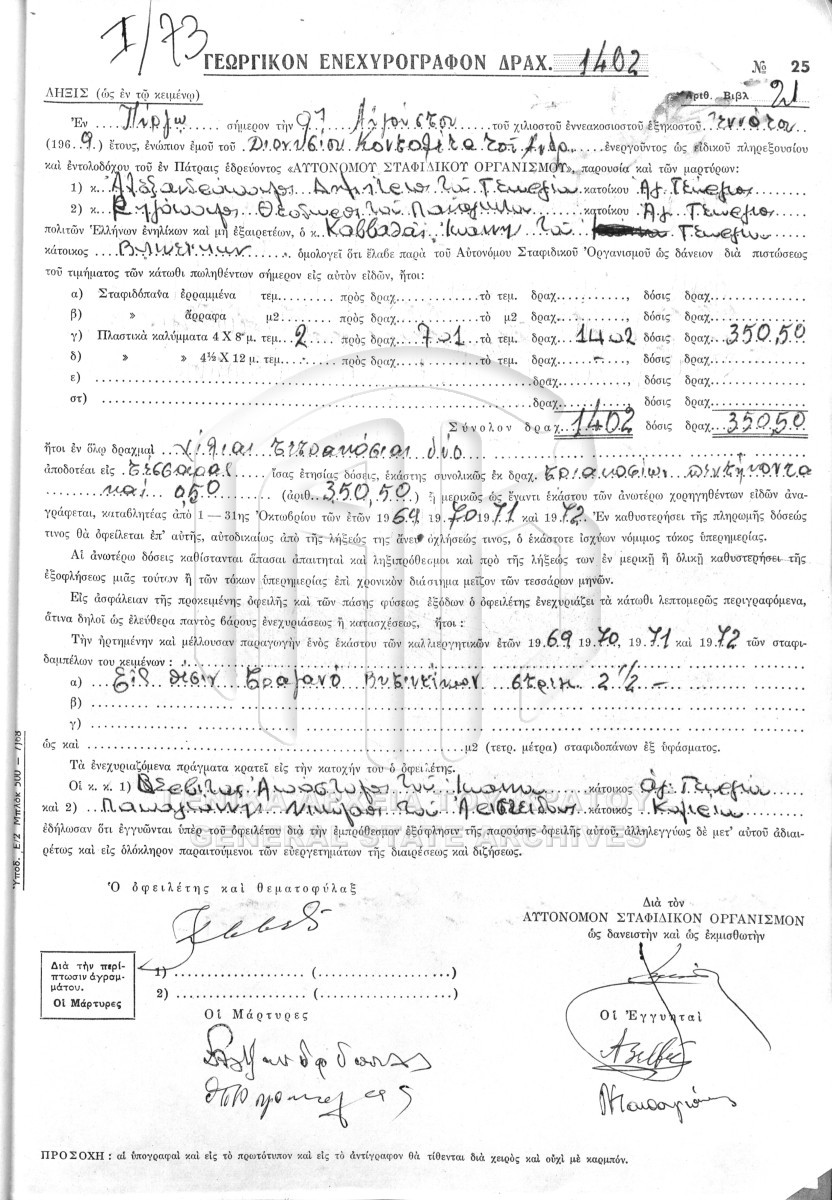 I/73
ΓΕΩΡΓΙΚΟΝ ΕΝΕΧΥΡΟΓΡΑΦΟΝ ΔΡΑΧ. 1402
№ 25
ΛΗΞΙΣ (ὡς ἐν τῷ κειμένῳ)
Ἀριθ. Βιβλ 21
Ἐν Πύργῳ σήμερον τὴν 9ην Αὐγούστου τοῦ χιλιοστοῦ ἐννεακοσιοστοῦ ἑξηκοστοῦ ἐννάτου
(1969) ἔτους, ἐνώπιον ἐμοῦ τοῦ Διονυσίου τοῦ Ἀνδρ. ἐνεργοῦντος ὡς εἰδικοῦ πληρεξουσίου
καὶ ἐντολοδόχου τοῦ ἐν Πάτραις ἑδρεύοντος «ΑΥΤΟΝΟΜΟΥ ΣΤΑΦΙΔΙΚΟΥ ΟΡΓΑΝΙΣΜΟΥ», παρουσίᾳ καὶ τῶν μαρτύρων:
1) κ. Ἀλεξανδρόπουλος Δημήτριος τοῦ Γεωργίου κατοίκου Ἁγ. Γεώργιος
2) κ. Θεόδωρος τοῦ κατοίκου Ἁγ. Γεώργιος
πολιτῶν Ἑλλήνων ἐνηλίκων καὶ μὴ ἐξαιρετέων, ὁ κ. Καββαδᾶς Ἰωάννη τοῦ Γεωργίου
κάτοικος ὁμολογεῖ ὅτι ἔλαβε παρὰ τοῦ Αὐτονόμου Σταφιδικοῦ Ὀργανισμοῦ ὡς δάνειον διὰ πιστώσεως
τοῦ τιμήματος τῶν κάτωθι πωληθέντων σήμερον εἰς αὐτὸν εἰδῶν, ἤτοι:
α) Σταφιδόπανα ἐρραμμένα τεμ. πρὸς δραχ. τὸ τεμ. δραχ. , δόσις δραχ.
β) » ἄρραφα μ2. πρὸς δραχ. τὸ μ2 δραχ. , δόσις δραχ.
γ) Πλαστικὰ καλύμματα 4 Χ 8 μ. τεμ. 2 πρὸς δραχ. 701 τὸ τεμ. δραχ. 1402 δόσις δραχ. 350,50
δ) » » 4½ Χ 12 μ. τεμ. πρὸς δραχ. τὸ τεμ. δραχ. - , δόσις δραχ.
ε) δραχ. , δόσις δραχ.
στ) δραχ. δόσις δραχ.
Σύνολον δραχ. 1402 δόσις δραχ. 350,50
ἤτοι ἐν ὅλῳ δραχμαὶ χίλιαι τετρακόσιαι δύο
ἀποδοτέαι εἰς τέσσαρας ἴσας ἐτησίας δόσεις, ἑκάστης συνολικῶς ἐκ δραχ. τριακοσίων πεντήκοντα
καὶ 0,50 (ἀριθ. 350,50) ἢ μερικῶς ὡς ἔναντι ἑκάστου τῶν ἀνωτέρω χορηγηθέντων εἰδῶν ἀνα-
γράφεται, καταβλητέας ἀπὸ 1 — 31ης Ὀκτωβρίου τῶν ἐτῶν 1969 1970 1971 καὶ 1972. Ἐν καθυστερήσει τῆς πληρωμῆς δόσεώς
τινος θὰ ὀφείλεται ἐπ' αὐτῆς, αὐτοδικαίως ἀπὸ τῆς λήξεώς της ἄνευ ὀχλήσεώς τινος, ὁ ἑκάστοτε ἰσχύων νόμιμος τόκος ὑπερημερίας.
Αἱ ἀνωτέρω δόσεις καθίστανται ἅπασαι ἀπαιτηταὶ καὶ ληξιπρόθεσμοι καὶ πρὸ τῆς λήξεώς των ἐν μερικῇ ἢ ὁλικῇ καθυστερήσει τῆς
ἐξοφλήσεως μιᾶς τούτων ἢ τῶν τόκων ὑπερημερίας ἐπὶ χρονικὸν διάστημα μεῖζον τῶν τεσσάρων μηνῶν.
Εἰς ἀσφάλειαν τῆς προκειμένης ὀφειλῆς καὶ τῶν πάσης φύσεως ἐξόδων ὁ ὀφειλέτης ἐνεχυριάζει τὰ κάτωθι λεπτομερῶς περιγραφόμενα,
ἅτινα δηλοῖ ὡς ἐλεύθερα παντὸς βάρους ἐνεχυριάσεως ἢ κατασχέσεως, ἤτοι :
Τὴν ἠρτημένην καὶ μέλλουσαν παραγωγὴν ἑνὸς ἑκάστου τῶν καλλιεργητικῶν ἐτῶν 1969 1970, 1971 καὶ 1972 τῶν σταφι-
δαμπέλων του κειμένων :
α) Εἰς θέσιν Τραγανὸ στρεμ. 2 1/2 -
β)
γ)
ὡς καὶ μ2 (τετρ. μέτρα) σταφιδοπάνων ἐξ ὑφάσματος.
Τὰ ἐνεχυριαζόμενα πράγματα κρατεῖ εἰς τὴν κατοχήν του ὁ ὀφειλέτης.
Οἱ κ. κ. 1) Ἀπόστολος τοῦ Ἰωάννου κάτοικος Ἁγ. Γεωργίου
καὶ 2) Παπαγιάννης τοῦ Ἀριστείδου κάτοικος
ἐδήλωσαν ὅτι ἐγγυῶνται ὑπὲρ τοῦ ὀφειλέτου διὰ τὴν ἐμπρόθεσμον ἐξόφλησιν τῆς παρούσης ὀφειλῆς αὐτοῦ, ἀλληλεγγύως δὲ μετ' αὐτοῦ ἀδιαι-
ρέτως καὶ εἰς ὁλόκληρον παραιτούμενοι τῶν εὐεργετημάτων τῆς διαιρέσεως καὶ διζήσεως.
GENERAL STATE ARCHIVES
Ὁ ὀφειλέτης καὶ θεματοφύλαξ
Διὰ τὸν
ΑΥΤΟΝΟΜΟΝ ΣΤΑΦΙΔΙΚΟΝ ΟΡΓΑΝΙΣΜΟΝ
ὡς δανειστὴν καὶ ὡς ἐκμισθωτὴν
Διὰ τὴν περί-
πτωσιν ἀγραμ-
μάτου.
Οἱ Μάρτυρες
1) (....)
2) (....)
Οἱ Μάρτυρες
Οἱ Ἐγγυηταὶ
Ὑποδ. Ε/2 Μπλὸκ 500 — 7/68
ΠΡΟΣΟΧΗ : αἱ ὑπογραφαὶ καὶ εἰς τὸ πρωτότυπον καὶ εἰς τὸ ἀντίγραφον θὰ τίθενται διὰ χειρὸς καὶ οὐχὶ μὲ καρμπόν.